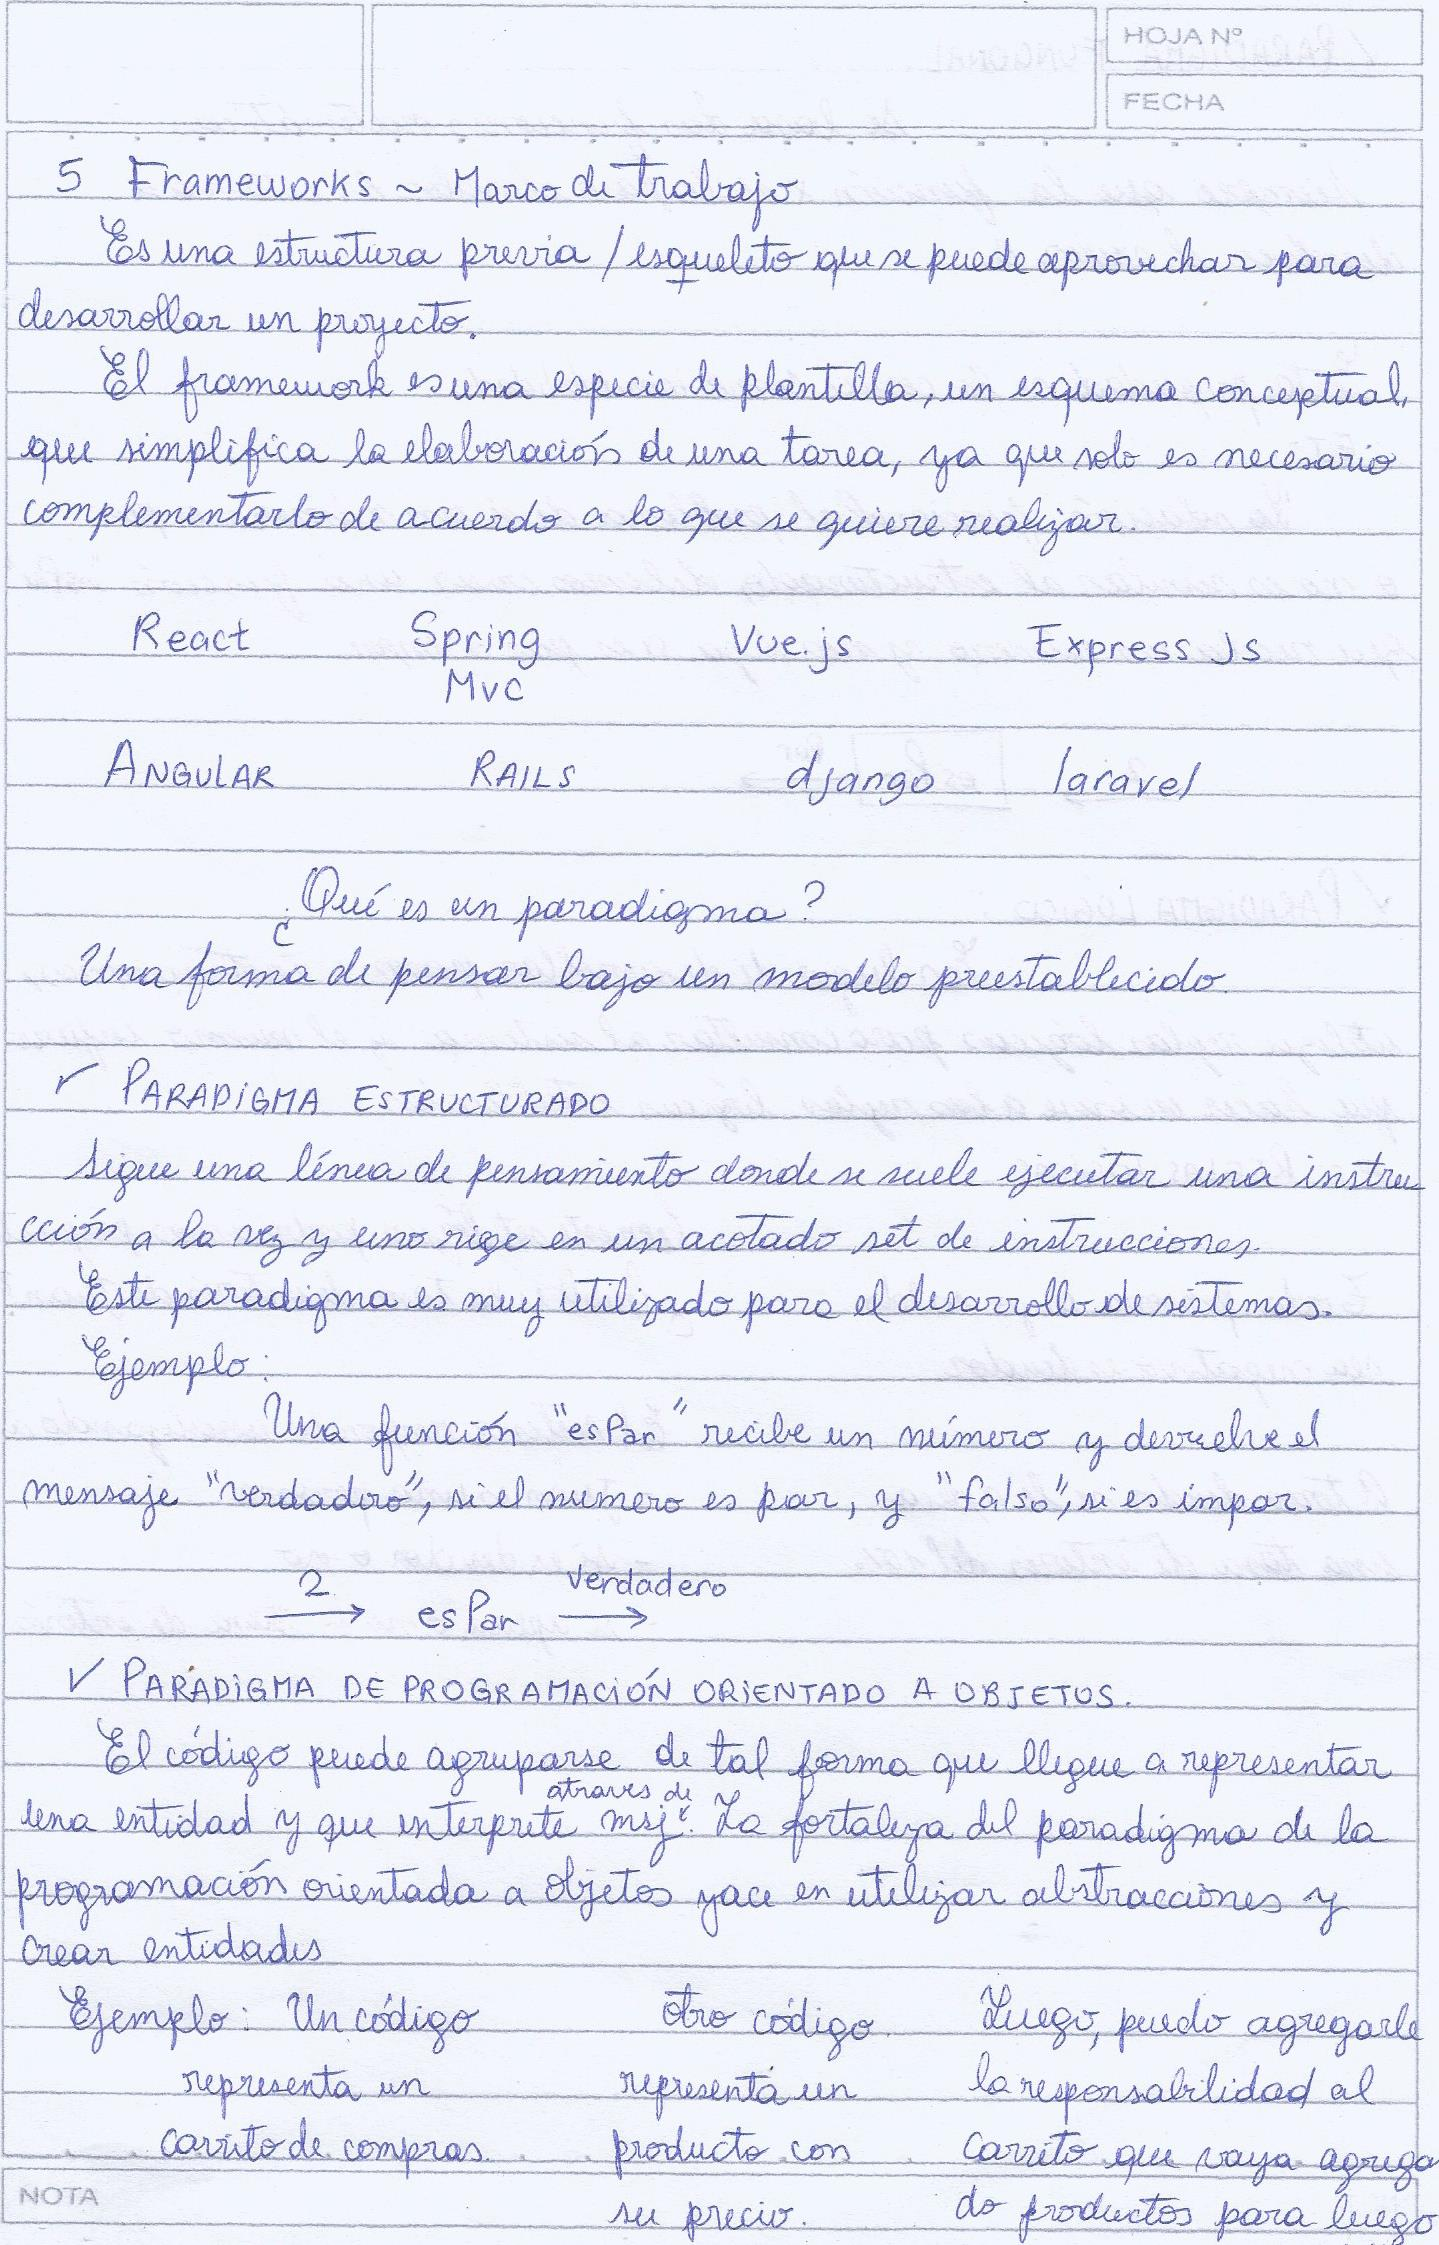 HOJA Nº
FECHA
5 Frameworks ~ Marco de trabajo
Es una estructura previa / esqueleto que se puede aprovechar para
desarrollar un proyecto.
El framework es una especie de plantilla, un esquema conceptual,
que simplifica la elaboración de una tarea, ya que solo es necesario
complementarlo de acuerdo a lo que se quiere realizar.
React Spring Vue.js Express Js
MVC
ANGULAR RAILS django laravel
¿Qué es un paradigma?
Una forma de pensar bajo un modelo preestablecido.
✓ PARADIGMA ESTRUCTURADO
Sigue una línea de pensamiento donde se suele ejecutar una instru-
cción a la vez y uno rige en un acotado set de instrucciones.
Este paradigma es muy utilizado para el desarrollo de sistemas.
Ejemplo:
Una función "esPar" recibe un número y devuelve el
mensaje "verdadero", si el numero es par, y "falso", si es impar.
2 verdadero
→ esPar →
✓ PARADIGMA DE PROGRAMACIÓN ORIENTADO A OBJETOS.
El código puede agruparse de tal forma que llegue a representar
atraves de
una entidad y que interprete msjs. La fortaleza del paradigma de la
programación orientada a objetos yace en utilizar abstracciones y
crear entidades
Ejemplo: Un código otro código Luego, puedo agregarle
representa un representa un la responsabilidad al
carrito de compras. producto con carrito que vaya agrega
su precio. do productos para luego
NOTA